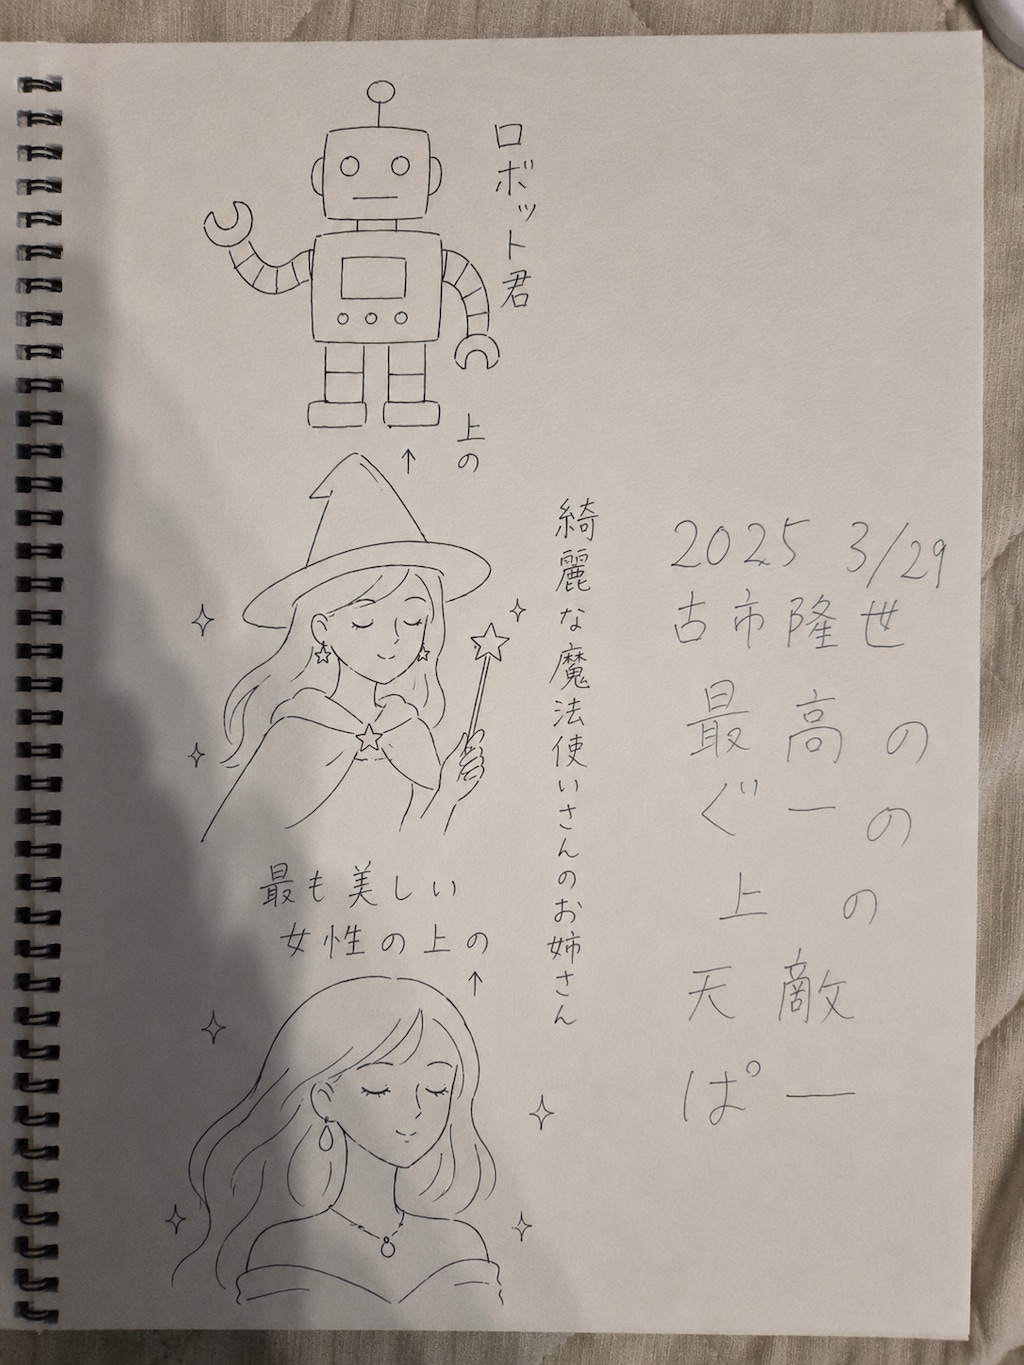 ロボット君
上の
綺麗な魔法使いさんのお姉さん
最も美しい
女性の上の
2025 3/29
古市隆世
最高の
ぐーの
上の
天敵
ぱー